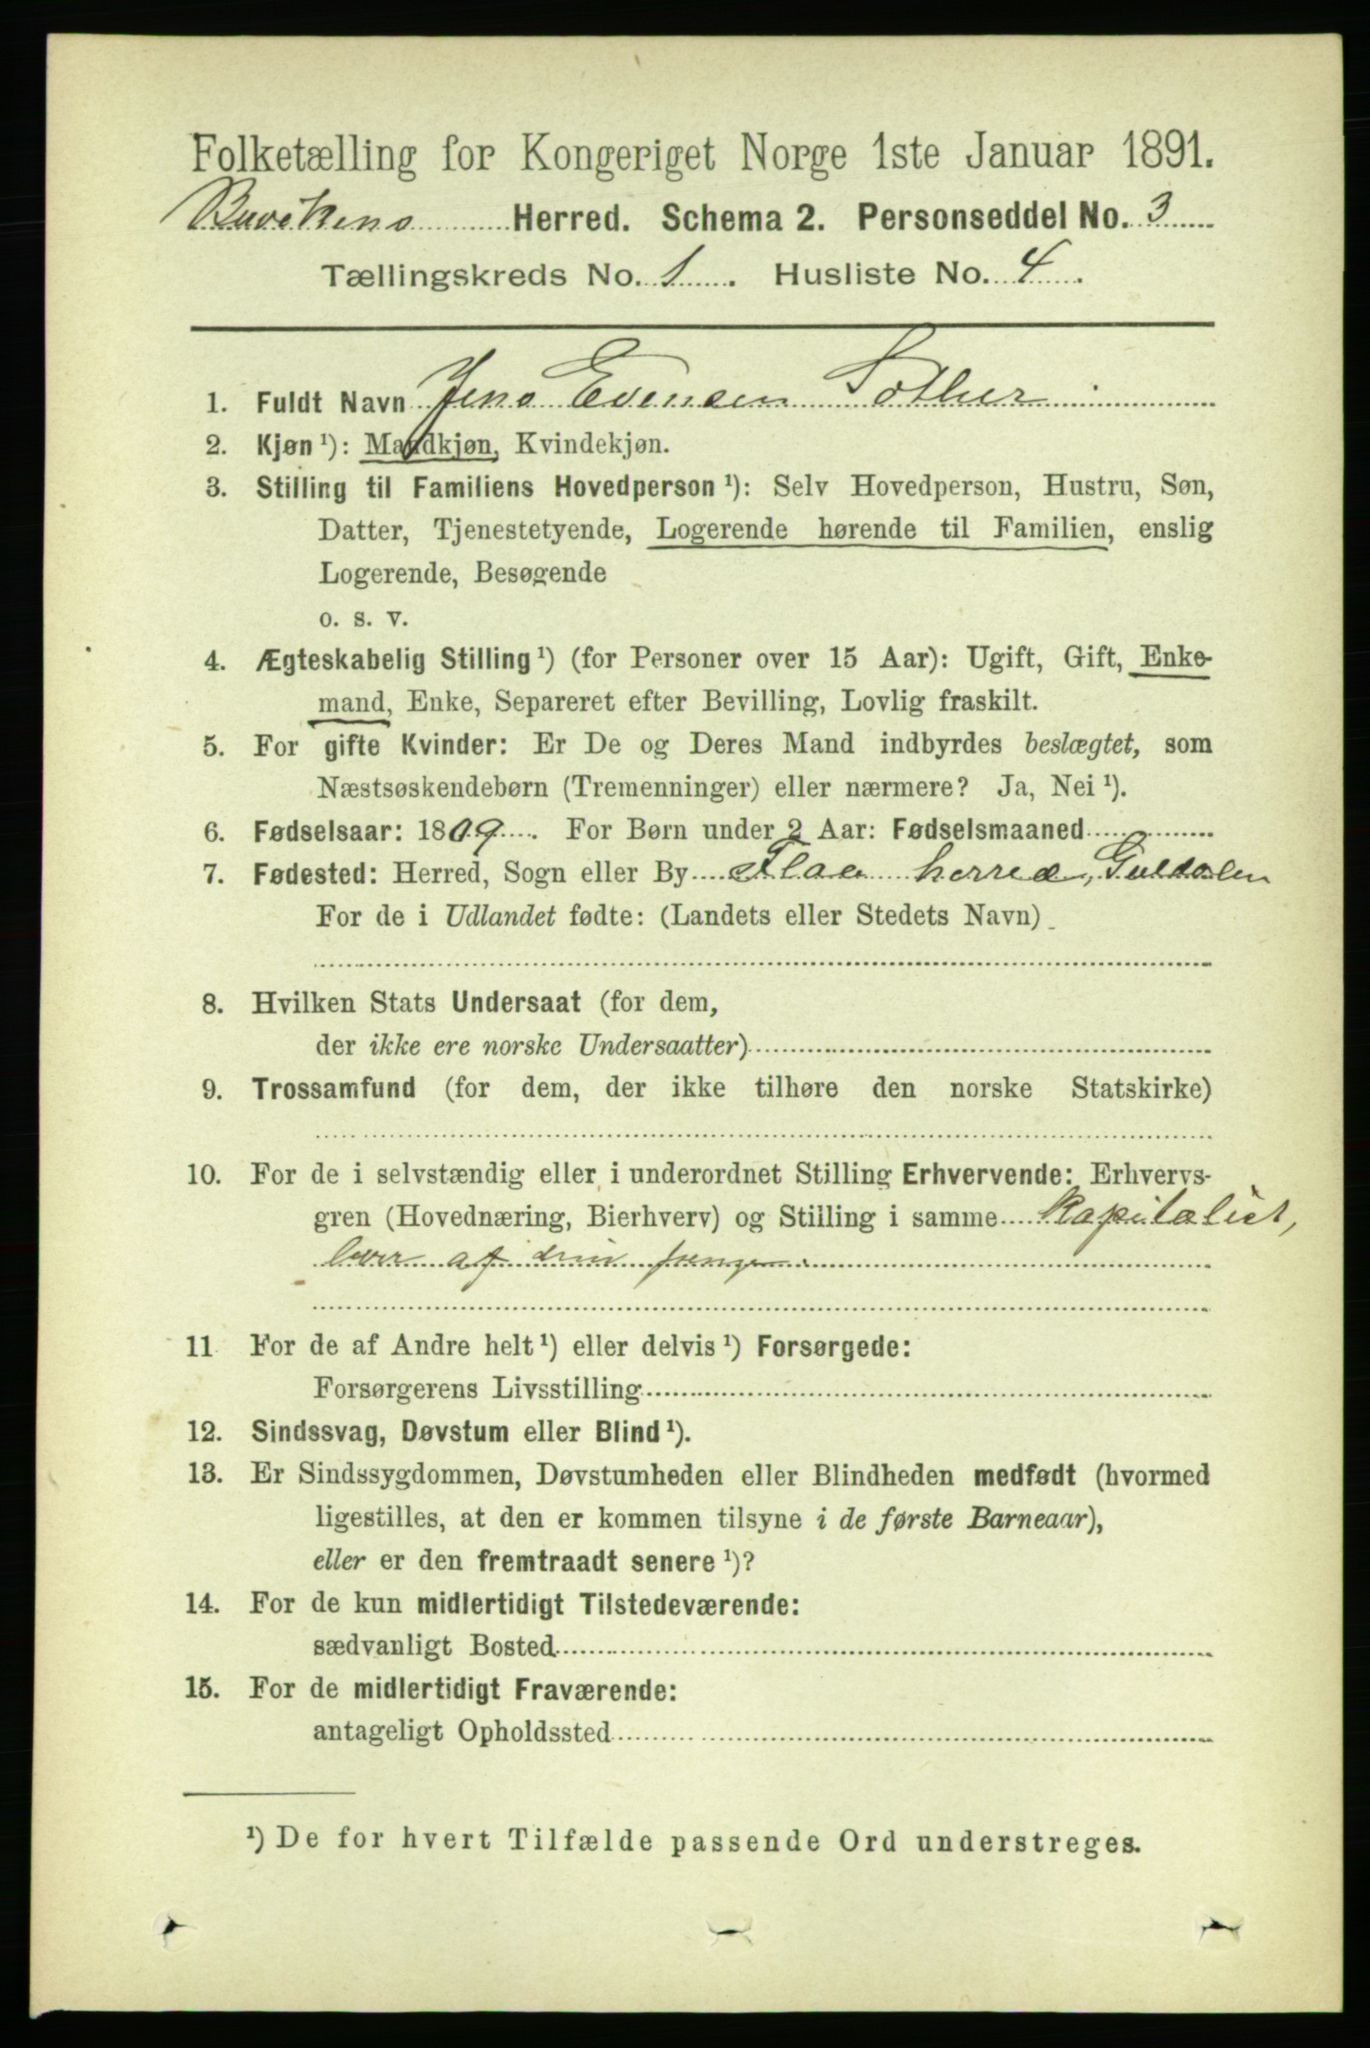 Folketælling for Kongeriget Norge 1ste Januar 1891.
Buvikens Herred. Schema 2. Personseddel No. 3
Tællingskreds No. 1. Husliste No. 4.
1. Fuldt Navn Jens Evensen
2. Kjøn ¹): Mandkjøn, Kvindekjøn.
3. Stilling til Familiens Hovedperson ¹): Selv Hovedperson, Hustru, Søn,
Datter, Tjenestetyende, Logerende hørende til Familien, enslig
Logerende, Besøgende
o. s. v.
4. Ægteskabelig Stilling ¹) (for Personer over 15 Aar): Ugift, Gift, Enke-
mand, Enke, Separeret efter Bevilling, Lovlig fraskilt.
5. For gifte Kvinder: Er De og Deres Mand indbyrdes beslægtet, som
Næstsøskendebørn (Tremenninger) eller nærmere? Ja, Nei ¹).
6. Fødselsaar: 1809. For Børn under 2 Aar: Fødselsmaaned
7. Fødested: Herred, Sogn eller By Flaa herred, Guldalen
For de i Udlandet fødte: (Landets eller Stedets Navn)
8. Hvilken Stats Undersaat (for dem,
der ikke ere norske Undersaatter)
9. Trossamfund (for dem, der ikke tilhøre den norske Statskirke)
10. For de i selvstændig eller i underordnet Stilling Erhvervende: Erhvervs-
gren (Hovednæring, Bierhverv) og Stilling i samme Kapitalist,
lever af sine penge.
11 For de af Andre helt ¹) eller delvis ¹) Forsørgede:
Forsørgerens Livsstilling
12. Sindssvag, Døvstum eller Blind ¹).
13. Er Sindssygdommen, Døvstumheden eller Blindheden medfødt (hvormed
ligestilles, at den er kommen tilsyne i de første Barneaar),
eller er den fremtraadt senere ¹)?
14. For de kun midlertidigt Tilstedeværende:
sædvanligt Bosted
15. For de midlertidigt Fraværende:
antageligt Opholdssted
¹) De for hvert Tilfælde passende Ord understreges.